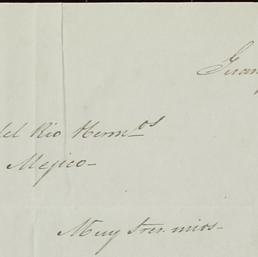 Guan
del Rio Herm.os
Mejico-
Muy Sres. mios-